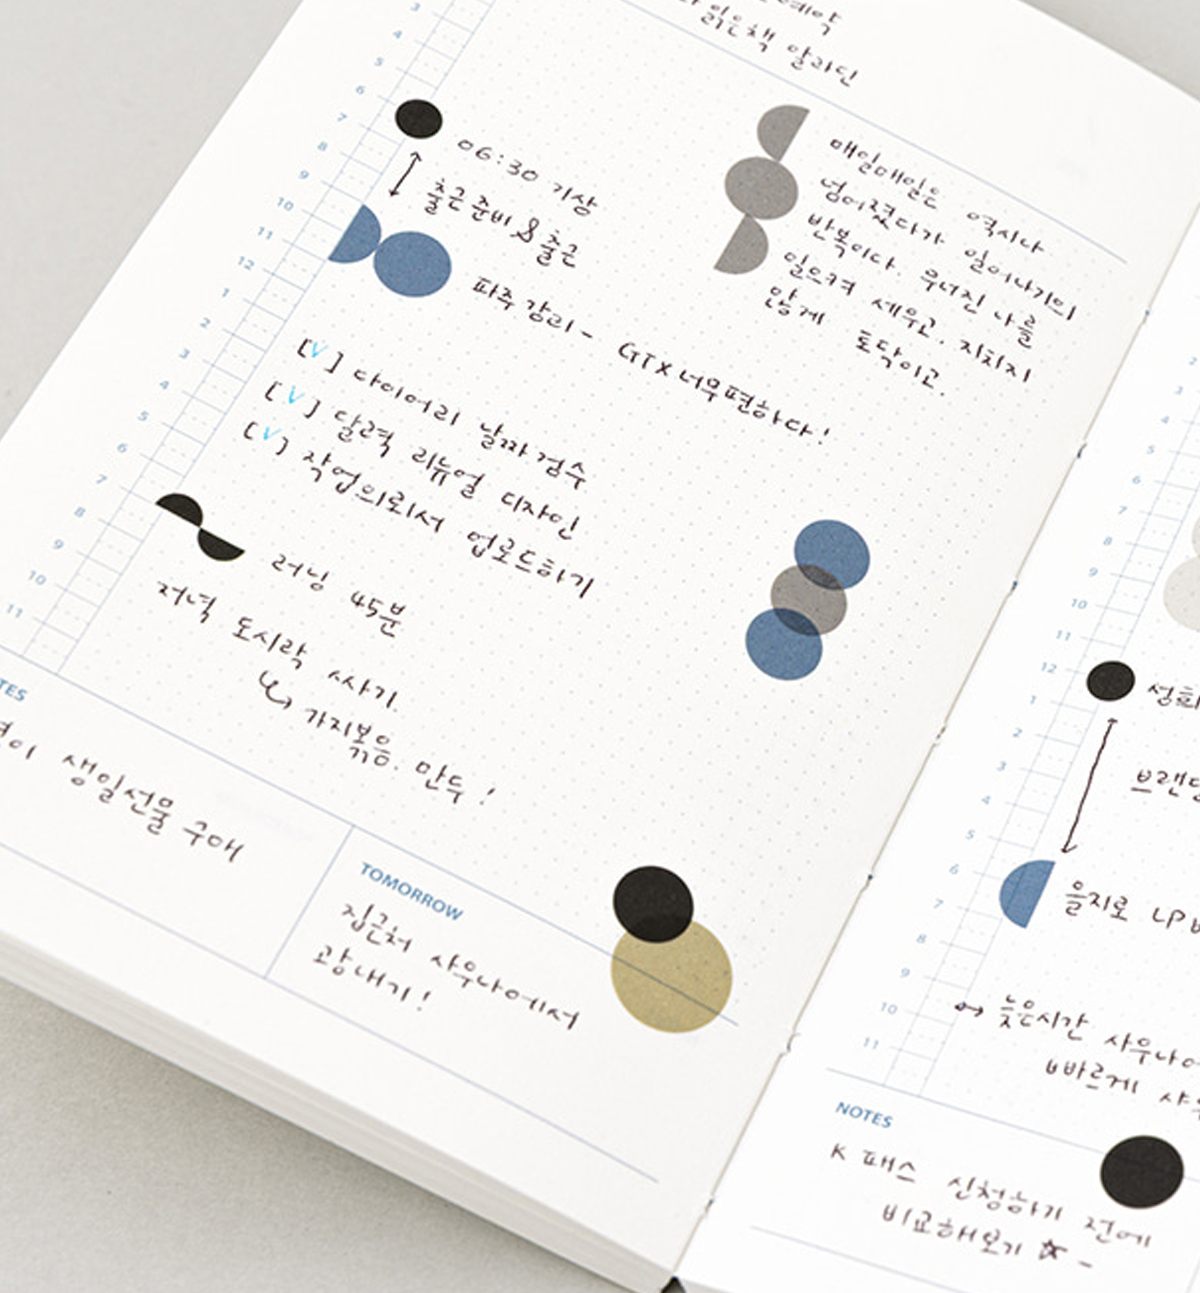 예약
읽은책 알라딘
3
4
5
6
7
8
9
10
11
12
1
2
3
4
5
6
7
8
9
10
11
06:30 기상
출근준비 & 출근
파주 강의 - GTX 너무편하다!
매일매일은 역시나
넘어졌다가 일어나기의
반복이다. 무너진 나를
일으켜 세우고, 지치지
않게 토닥이고.
[V] 다이어리 날짜검수
[V] 달력 리뉴얼 디자인
[V] 작업의뢰서 업로드하기
러닝 45분
저녁 도시락 싸기.
↳ 가지볶음. 만두!
TES
이 생일선물 구매
TOMORROW
집근처 사우나에서
광내기!
2
3
4
5
6
7
8
9
10
11
12
1
2
3
4
5
6
7
8
9
10
11
성희
브랜딩
을지로 LP
↔ 늦은시간 사우나
빠르게
NOTES
K 패스 신청하기 전에
비교해보기 ☆ -